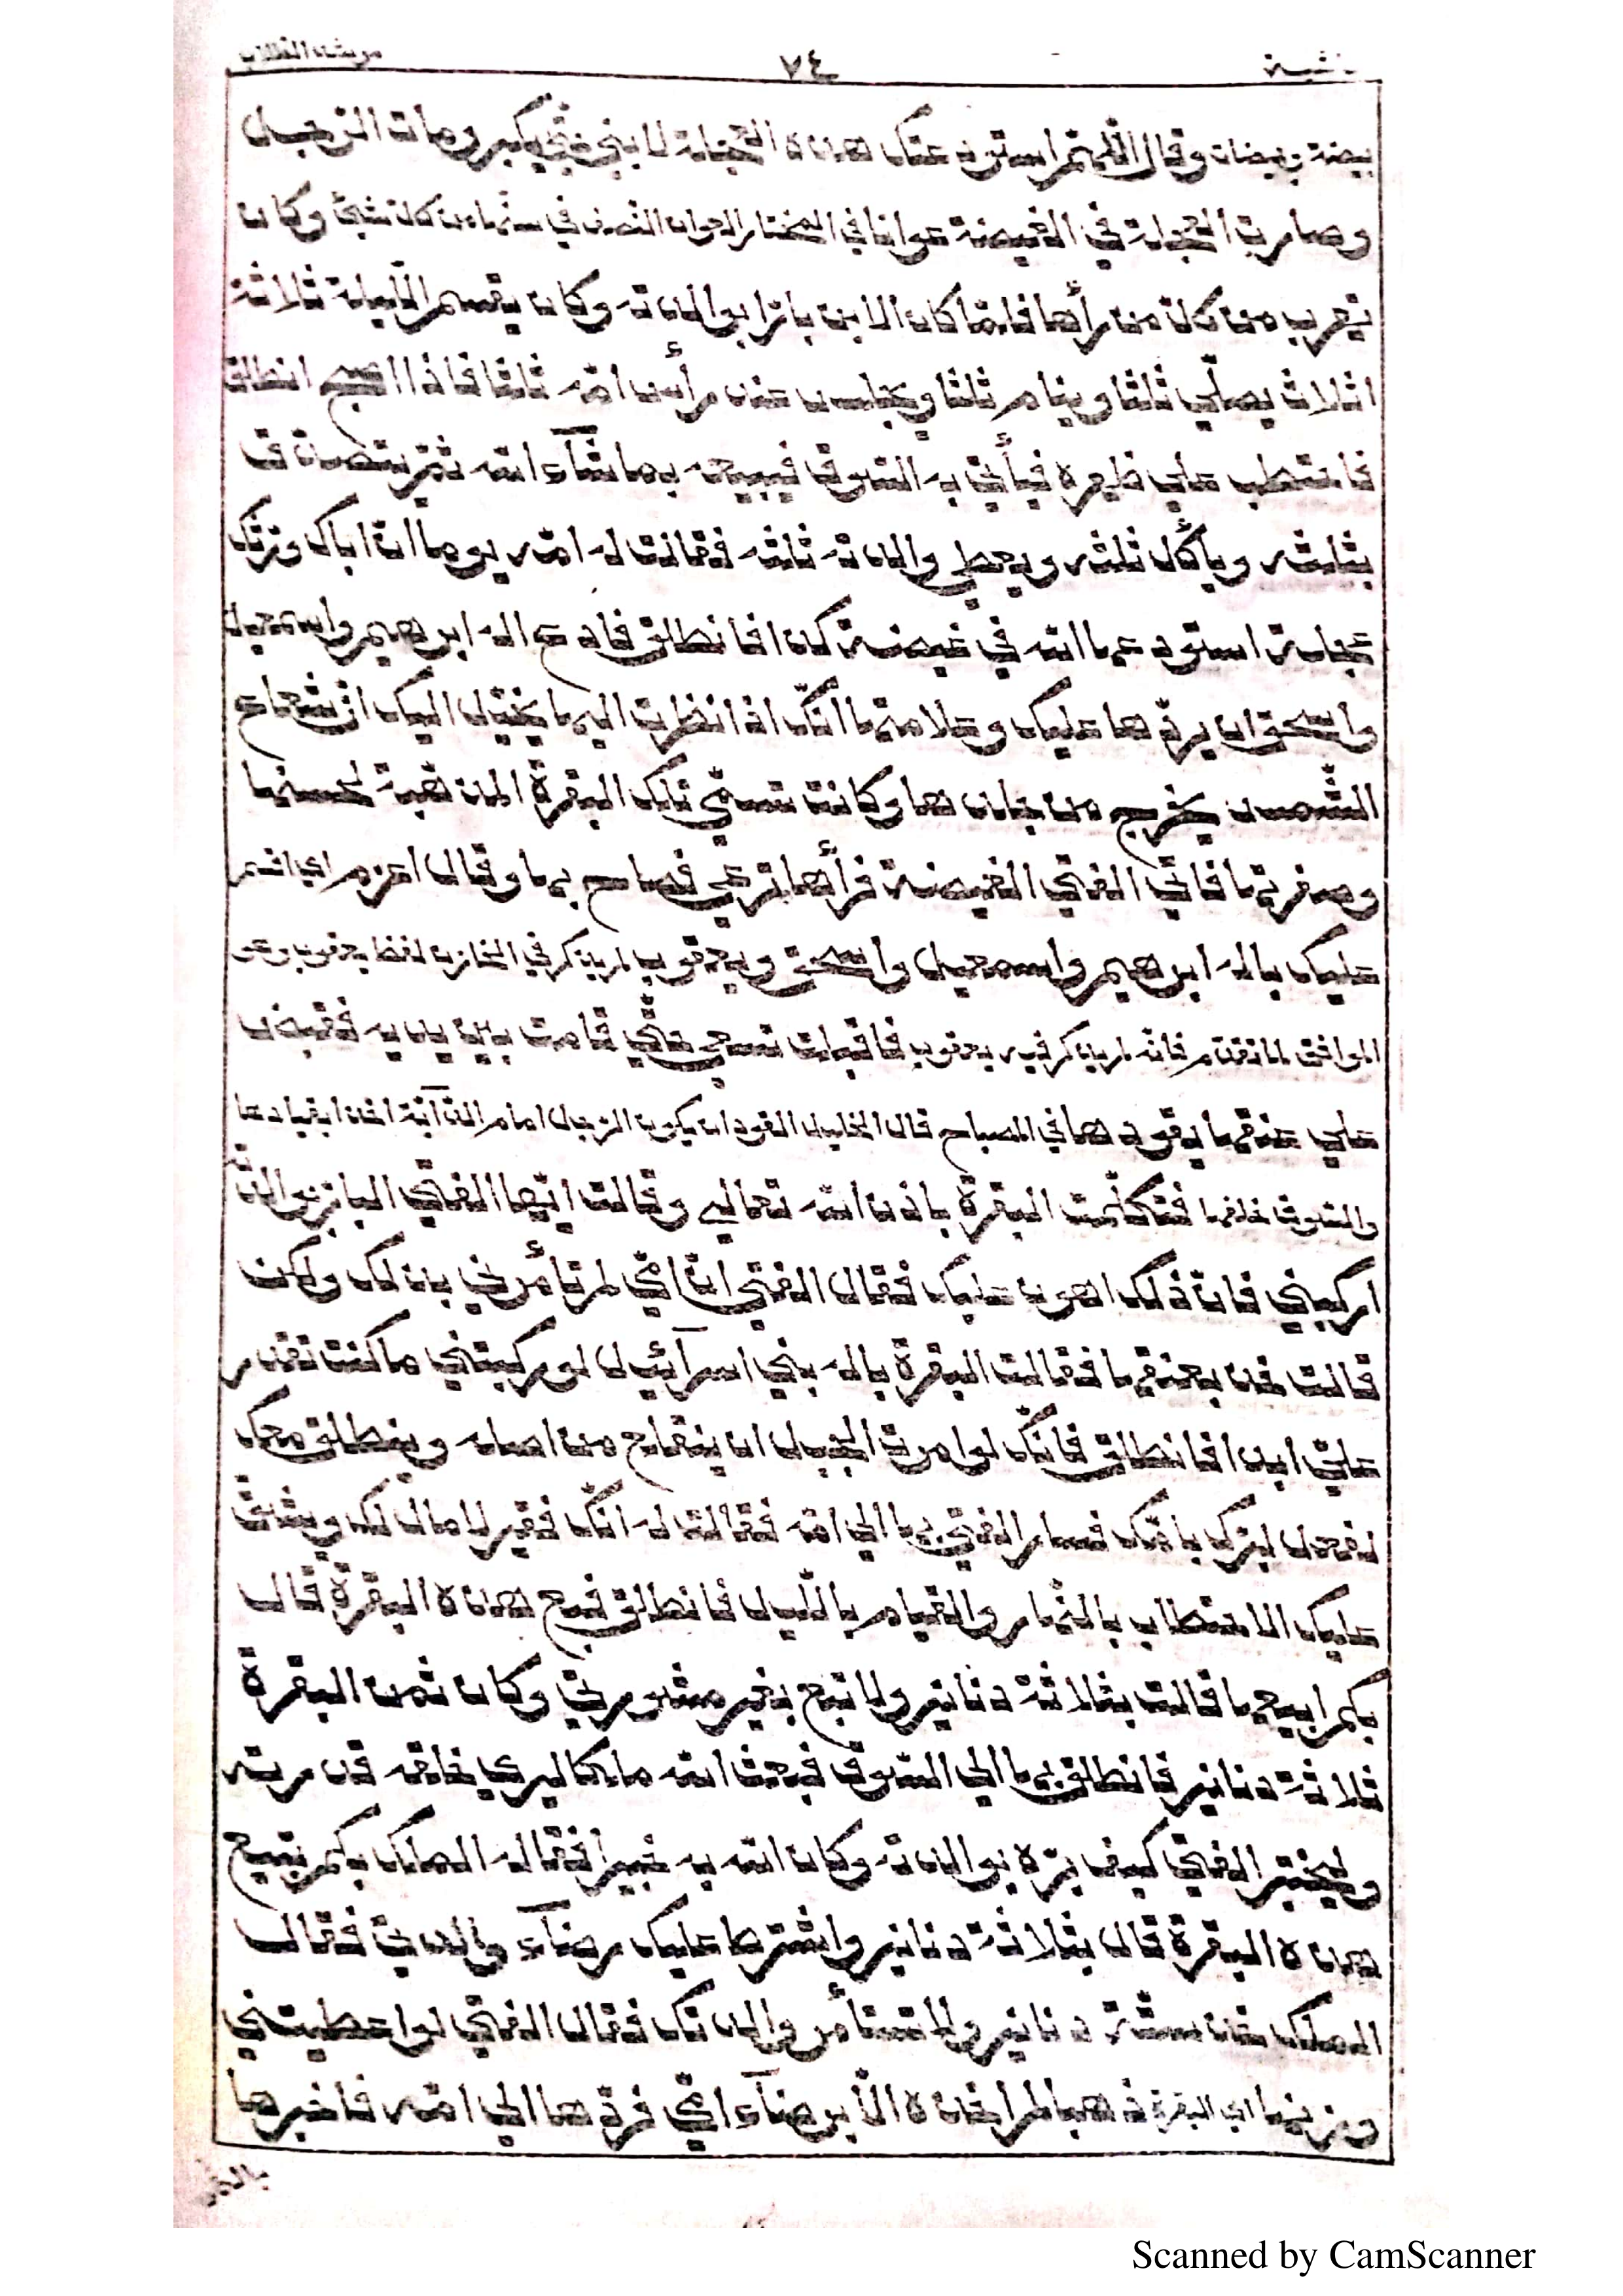 مرشد الطلاب ٧٤
بيضة بيضات وقال اللهم استودعتك هذه العجلة لابني حتى يكبر ومات الرجل
وصارت العجلة في الغيضة عوانا في المختار العوان النصف في سنها من كل شئ وكان
تهرب من كل من رأها فلما كان الابن بارا بوالدته وكان يقسم الليلة ثلاثة
اثلاث يصلي ثلثا وينام ثلثا ويجلس عند رأس امه ثلثا فاذا اصبح انطلق
فاحتطب علي ظهره فيأتي به السوق فيبيعه بما شآء الله ثم يتصدق
بثلثه ويأكل ثلثه ويعطي والدته ثلثه فقالت له امه يوما ان اباك ورثك
عجلة استودعها الله في غيضة كذا فانطلق فادع اله ابرهيم واسمعيل
واسحق ان يردها عليك وعلامتها انك اذا نظرت اليها يخيل اليك ان شعاع
الشمس يخرج من جلدها وكانت تسمي تلك البقرة المذهبة لحسنها
وصفرتها فاتي الفتي الغيضة فرأها ترعي فصاح بها وقال اعزم اي اقسم
عليك باله ابرهيم واسمعيل واسحق ويعقوب لم يذكر في الخازن لفظ يعقوب وهو
الموافق لما تقدم فانه لم يذكر فيه يعقوب فاقبلت تسعي حتي قامت بين يديه فقبض
علي عنقها يقودها في المصباح قال الخليل القود ان يكون الرجل امام الدآبة اخذا بقيادها
والسوق خلفها فتكلمت البقرة باذن الله تعالي وقالت ايها الفتي البار بوالدته
اركبني فان ذلك اهون عليك فقال الفتي ان امي لم تأمرني بذلك ولكن
قالت خذ بعنقها فقالت البقرة باله بني اسرآئيل لو ركبتني ما كنت تقدر
علي ابدا فانطلق فانك لو امرت الجبل ان ينقلع من اصله وينطلق معك
لفعل لبرك بامك فسار الفتي بها الي امه فقالت له انك فقير لا مال لك ويشق
عليك الاحتطاب بالنهار والقيام بالليل فانطلق فبع هذه البقرة قال
بكم ابيعها قالت بثلاثة دنانير ولا تبع بغير مشورتي وكان ثمن البقرة
ثلاثة دنانير فانطلق بها الي السوق فبعث الله ملكا ليري خلقه قدرته
وليختبر الفتي كيف بره بوالدته وكان الله به خبيرا فقال له الملك بكم تبيع
هذه البقرة قال بثلاثة دنانير واشترط عليك رضآء والدتي فقال
الملك خذ ستة دنانير ولا تستأمر والدتك فقال الفتي لو اعطيتني
وزنها اي البقرة ذهبا لم اخذه الا برضآء امي فردها الي امه فاخبرها
Scanned by CamScanner